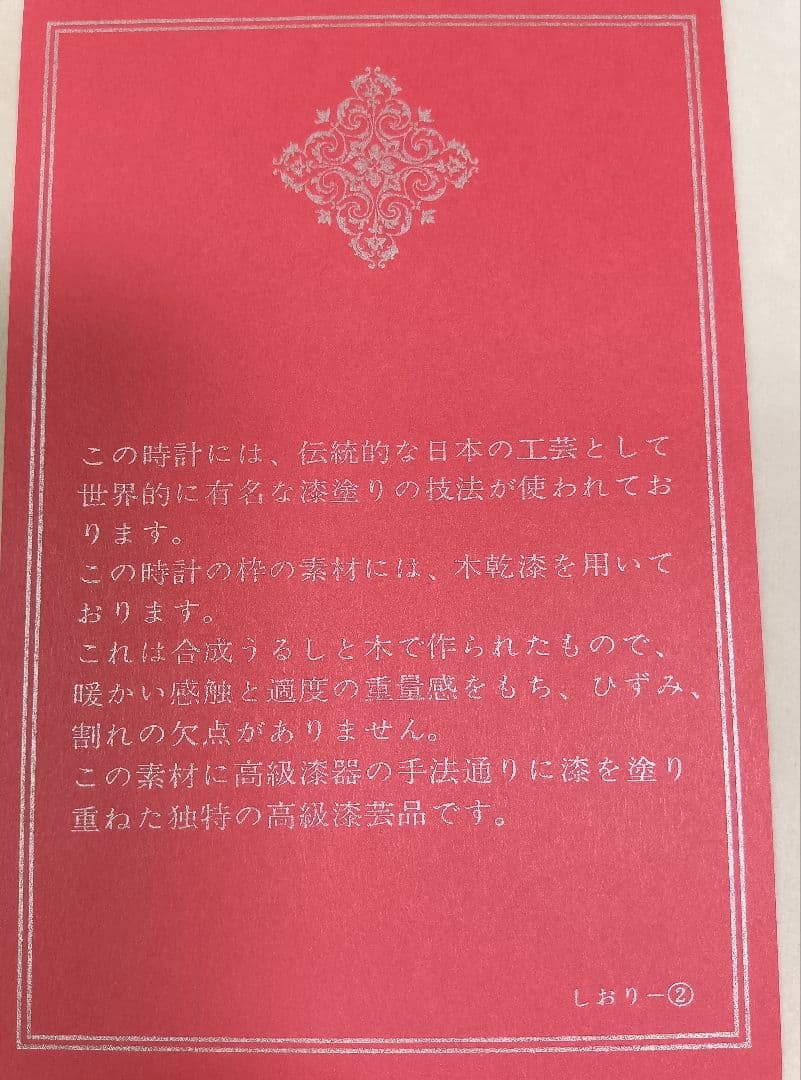 この時計には、伝統的な日本の工芸として
世界的に有名な漆塗りの技法が使われてお
ります。
この時計の枠の素材には、木乾漆を用いて
おります。
これは合成うるしと木で作られたもので、
暖かい感触と適度の重量感をもち、ひずみ、
割れの欠点がありません。
この素材に高級漆器の手法通りに漆を塗り
重ねた独特の高級漆芸品です。
しおりー②